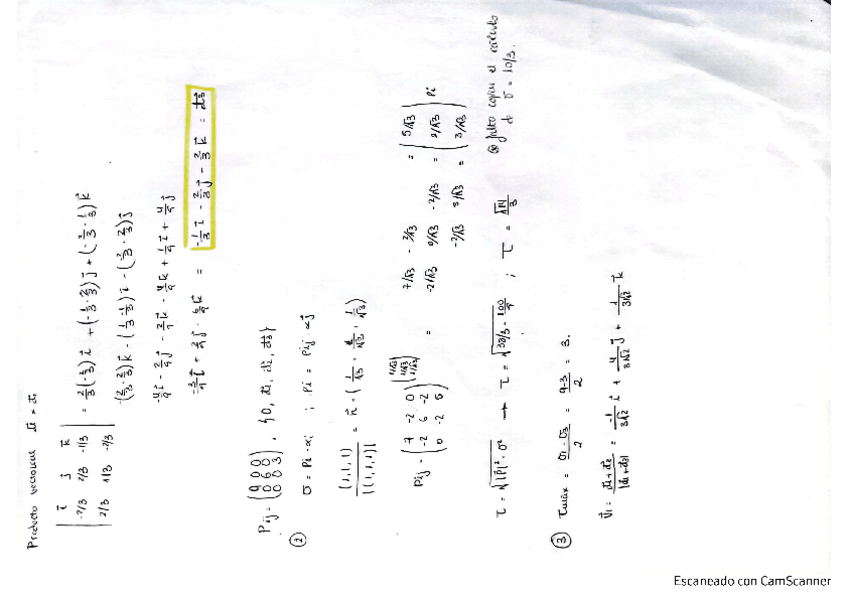 Producto vectorial d₁ × d₂
| i j k |
| -2/3 2/3 -1/3 |
| 2/3 1/3 -2/3 |
= 2/3(-2/3)i + (-1/3·2/3)j + (-2/3·1/3)k
-(2/3·2/3)k - (1/3·-1/3)i - (2/3·2/3)j
-4/9 i - 2/9 j - 2/9 k - 4/9 k + 1/9 i + 4/9 j
= -1/3 i - 2/3 j - 2/3 k = d₃
Pij = (9 0 0
0 6 0
0 0 3), {0, d₁, d₂, d₃}
②
σ = Pi·αi ; Pi = Pij·αj
(1,1,1) / |(1,1,1)| = n = (1/√3, 1/√3, 1/√3)
Pij = (7 -2 0
-2 6 -2
0 -2 5) (1/√3
1/√3
1/√3) = 7/√3 - 2/√3 = (5/√3
-2/√3 6/√3 - 2/√3 = 2/√3
-2/√3 5/√3 = 3/√3) Pi
τ = √|P|² - σ² → τ = √38/3 - 100/9 ; τ = √14/3
⊗ falto copiar el cálculo
de σ = 10/3.
③ τmáx = σ₁ - σ₃ / 2 = 9-3 / 2 = 3.
v₁ = d₁+d₃ / |d₁+d₃| = -1/3√2 i + 4/3√2 j + 1/3√2 k
Escaneado con CamScanner